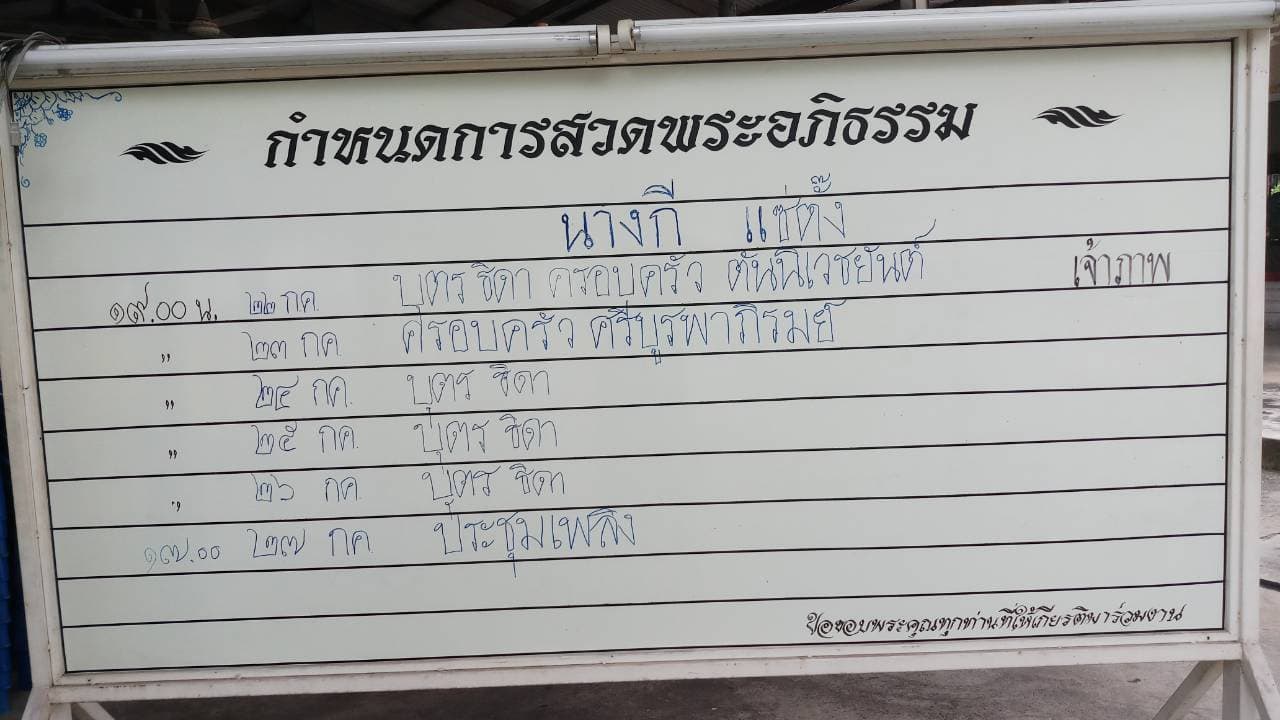 กำหนดการสวดพระอภิธรรม
นางกี แซ่ตั๊ง
๑๙.๐๐ น. ๒๒ กค. บุตร ธิดา ครอบครัว ตันนิเวชยันต์ เจ้าภาพ
„ ๒๓ กค. ครอบครัว ศรีบูรพาภิรมย์
„ ๒๔ กค. บุตร ธิดา
„ ๒๕ กค. บุตร ธิดา
„ ๒๖ กค. บุตร ธิดา
๑๗.๐๐ ๒๗ กค. ประชุมเพลิง
ขอขอบพระคุณทุกท่านที่ให้เกียรติมาร่วมงาน